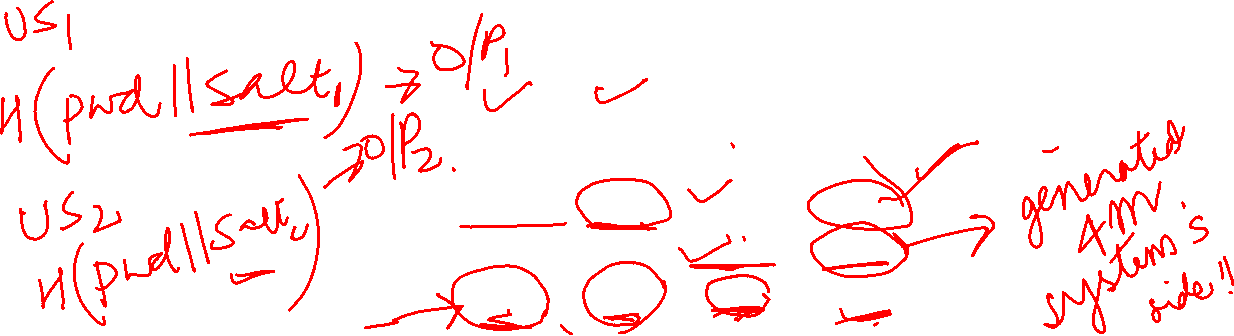 US1
H(pwd||salt1) → O/P1
US2
H(pwd||salt2) → O/P2.
generated
4m
system's
side!!